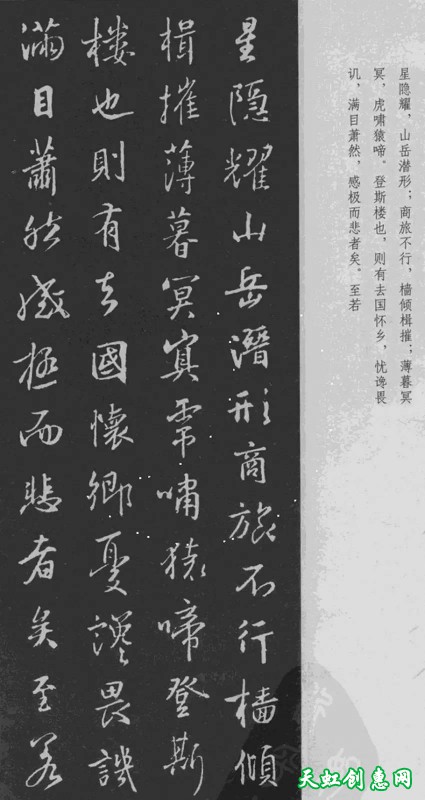 星隐耀，山岳潜形；商旅不行，樯倾楫摧；薄暮冥
冥，虎啸猿啼。登斯楼也，则有去国怀乡，忧谗畏
讥，满目萧然，感极而悲者矣。至若
星隱耀山岳潛形商旅不行檣傾
楫摧薄暮冥冥虎嘯猿啼登斯
樓也則有去國懷鄉憂讒畏譏
滿目蕭然感極而悲者矣至若
天虹创惠网